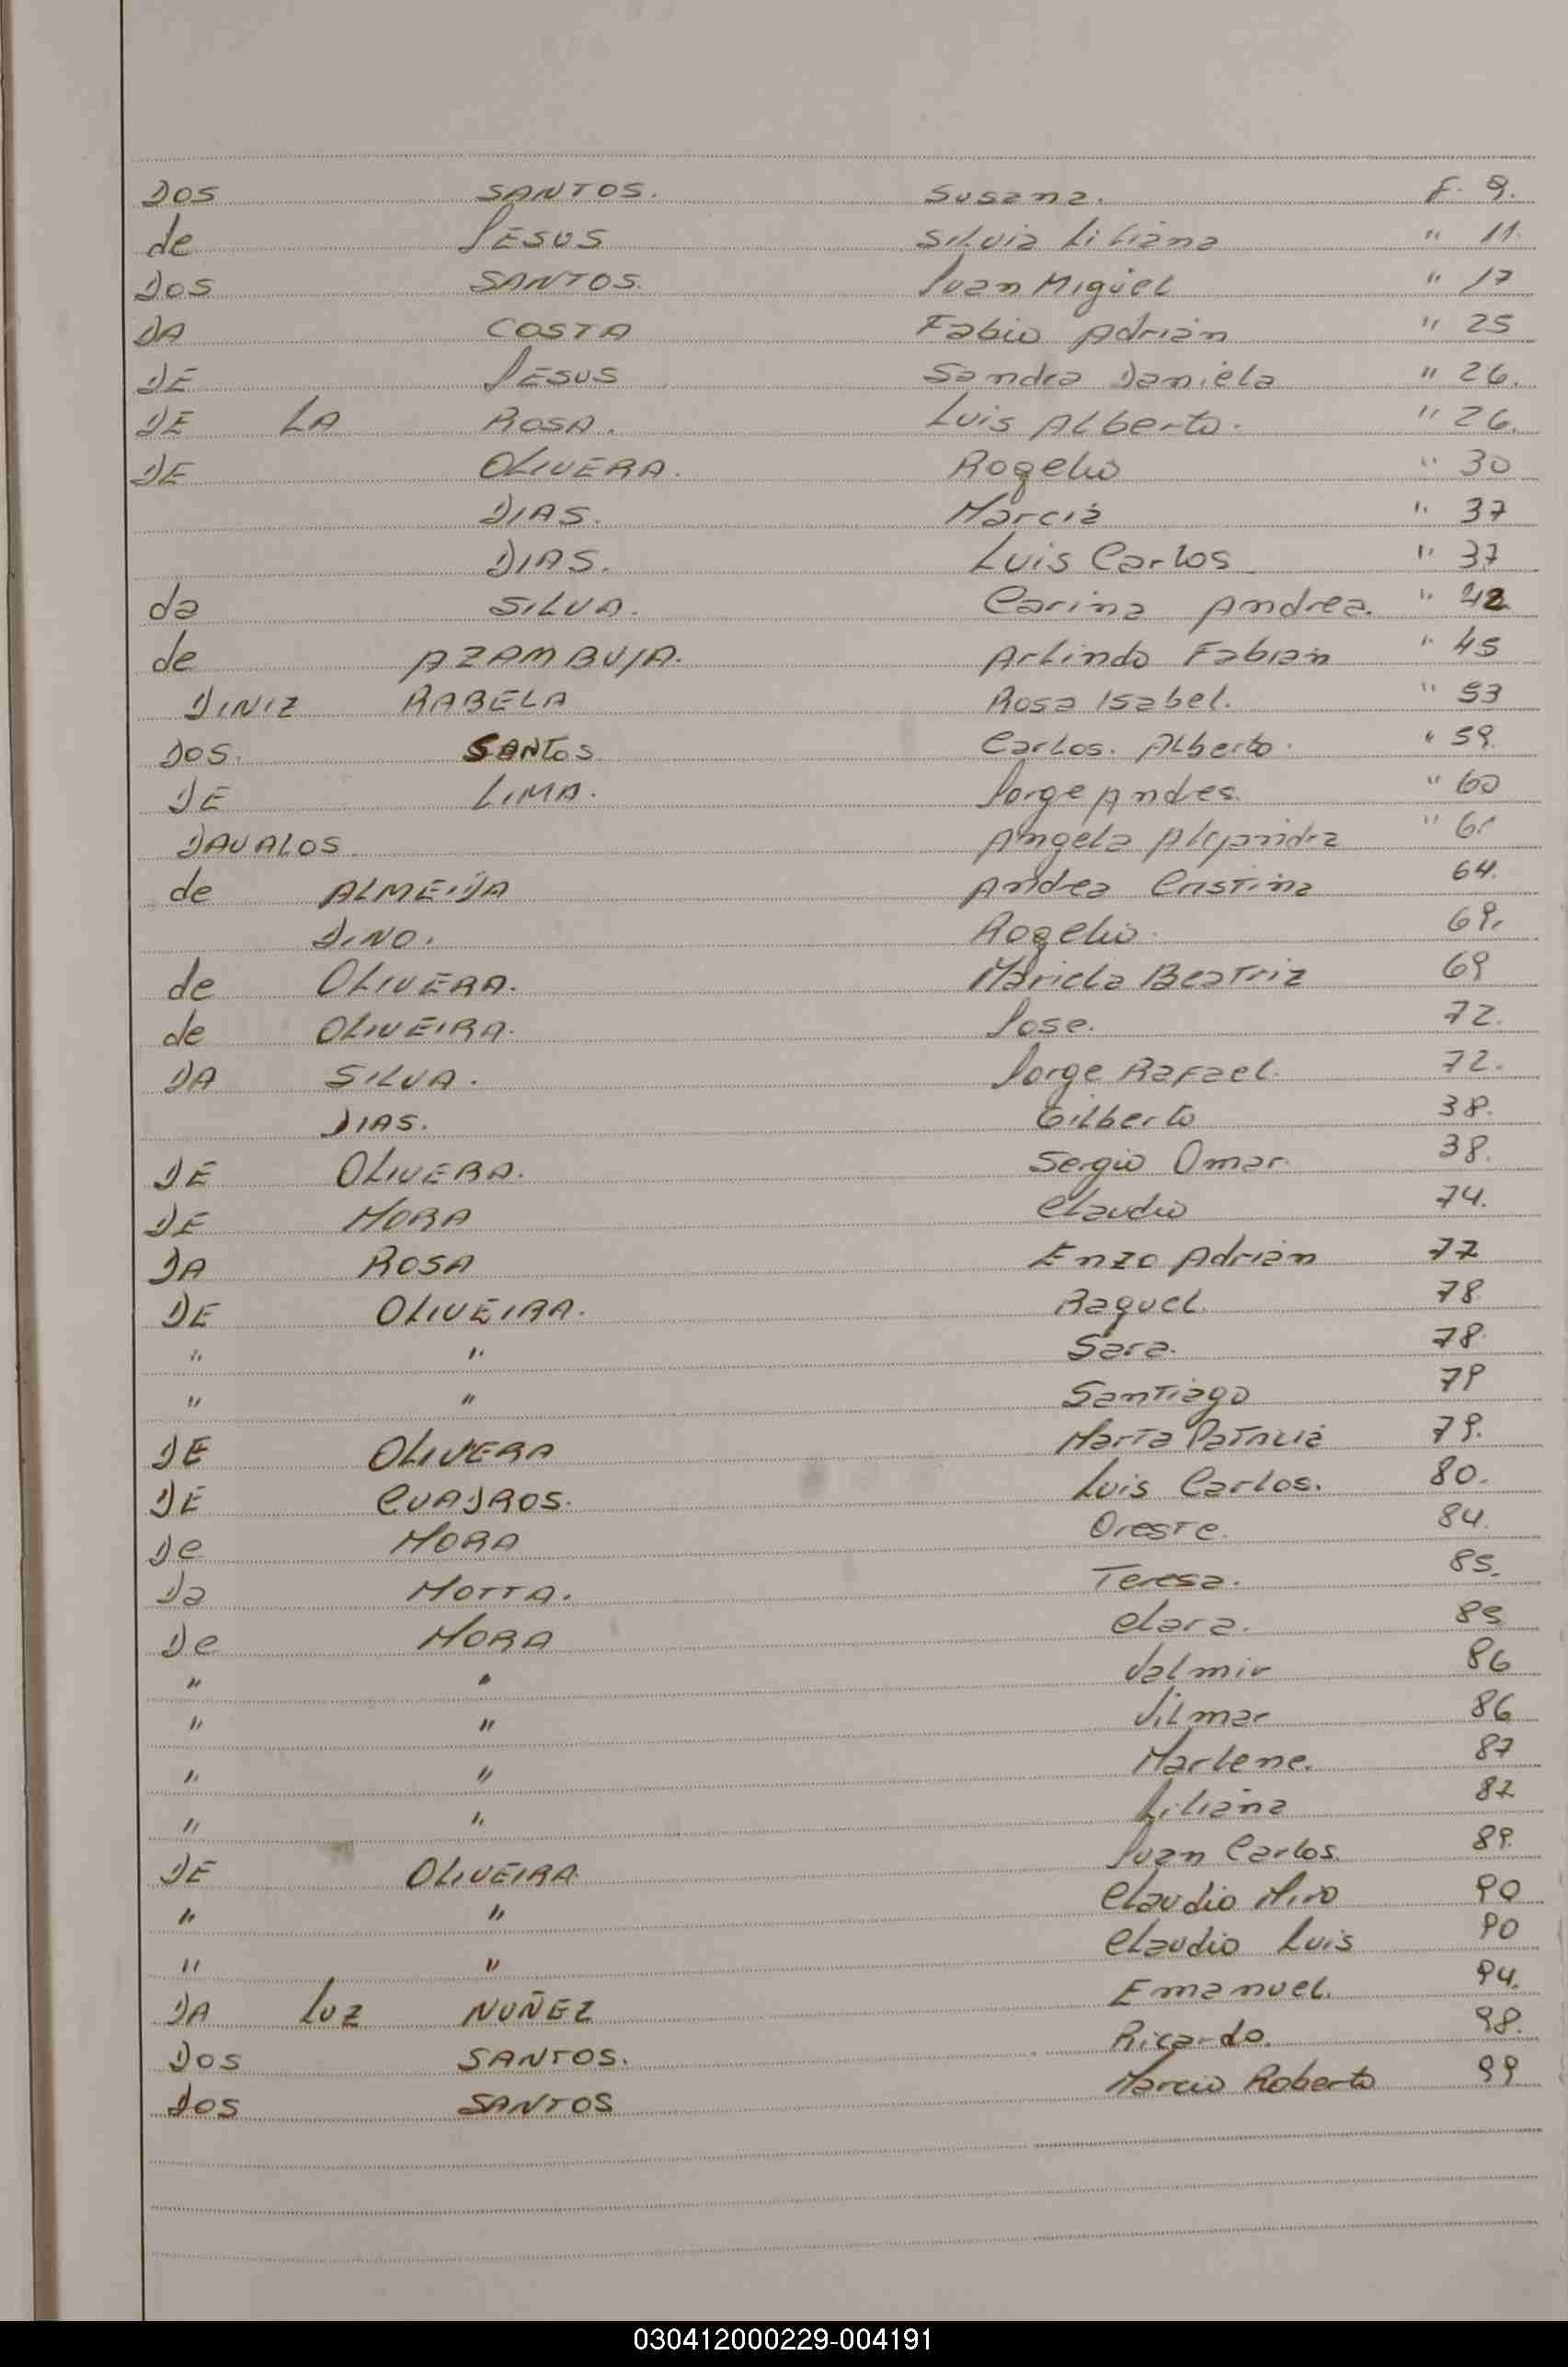 DOS SANTOS. Susana. F. 9.
de JESUS Silvia Liliana " 11.
DOS SANTOS. Juan Miguel " 17
DA COSTA Fabio Adrián " 25
DE JESUS Sandra Daniela " 26.
DE LA ROSA. Luis Alberto. " 26.
DE OLIVERA. Rogelio " 30
DIAS. Marcia " 37
DIAS. Luis Carlos " 37
da SILVA. Carina Andrea. " 42
de AZAMBUJA. Arlindo Fabian " 45
DINIZ RABELA Rosa Isabel. " 53
DOS. SANTOS Carlos. Alberto. " 59.
DE LIMA. Jorge Andres. " 60
DAVALOS Angela Alejandra " 61
de ALMEIDA Andrea Cristina 64.
DINO. Rogelio. 69.
de OLIVERA. Mariela Beatriz 69
de OLIVEIRA. Jose. 72.
DA SILVA. Jorge Rafael. 72.
DIAS. Gilberto 38.
DE OLIVERA. Sergio Omar. 38.
DE MORA Claudio 74.
DA ROSA Enzo Adrián 77
DE OLIVEIRA. Raquel. 78
" " Sara. 78.
" " Santiago 79
DE OLIVERA Marta Patricia 79.
DE CUADROS. Luis Carlos. 80.
De MORA Oreste. 84.
Da MOTTA. Teresa. 85.
De MORA Clara. 85
" " Valmir 86
" " Vilmar 86
" " Marlene. 87
" " Liliana 87
DE OLIVEIRA. Juan Carlos. 89.
" " Claudio Miro 90
" " Claudio Luis 90
DA LUZ NUÑEZ Emanuel. 94.
DOS SANTOS. Ricardo. 98.
DOS SANTOS Marcio Roberto 99
030412000229-004191